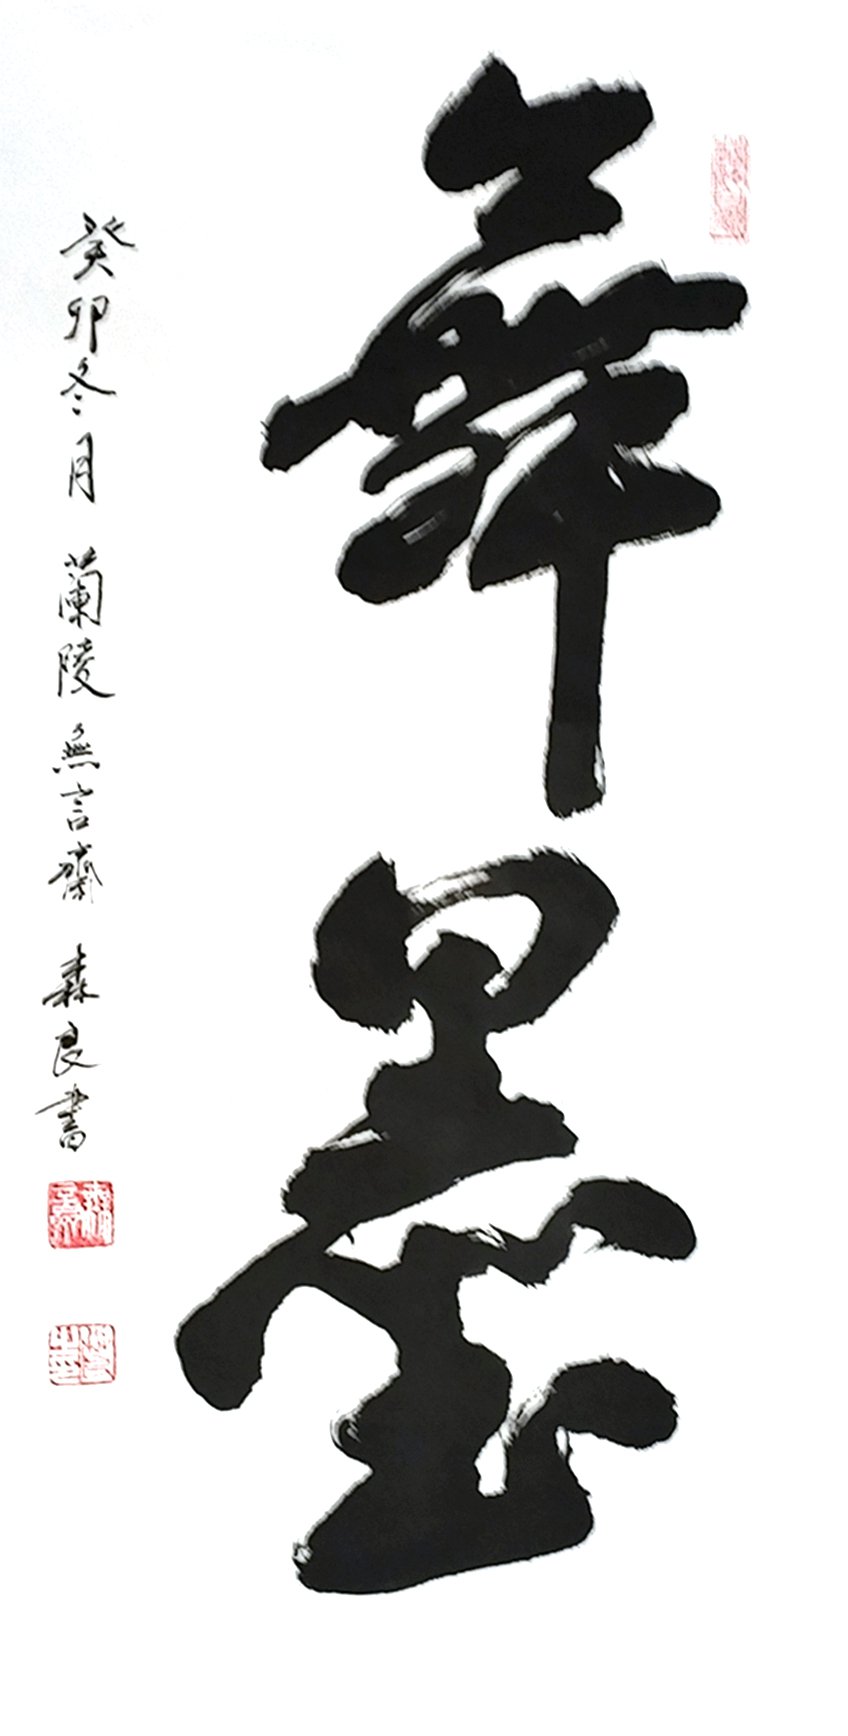 舞墨
癸卯冬月 蘭陵無言齋 森良書